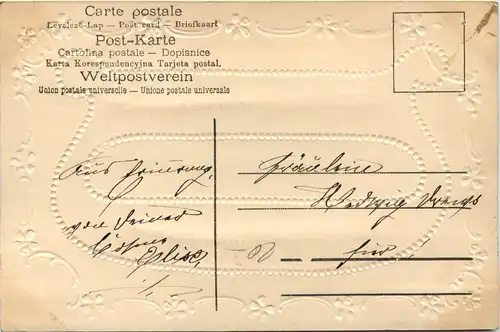 Carte postale
Levelező-Lap — Post card — Briefkaart
Post-Karte
Cartolina postale — Dopisnice
Karta Korespondencyjna Tarjeta postal.
Weltpostverein
Union postale universelle — Unione postale universale
Zur Erinnerung
von Deiner
Elise
Fräulein
Hedwig
hier